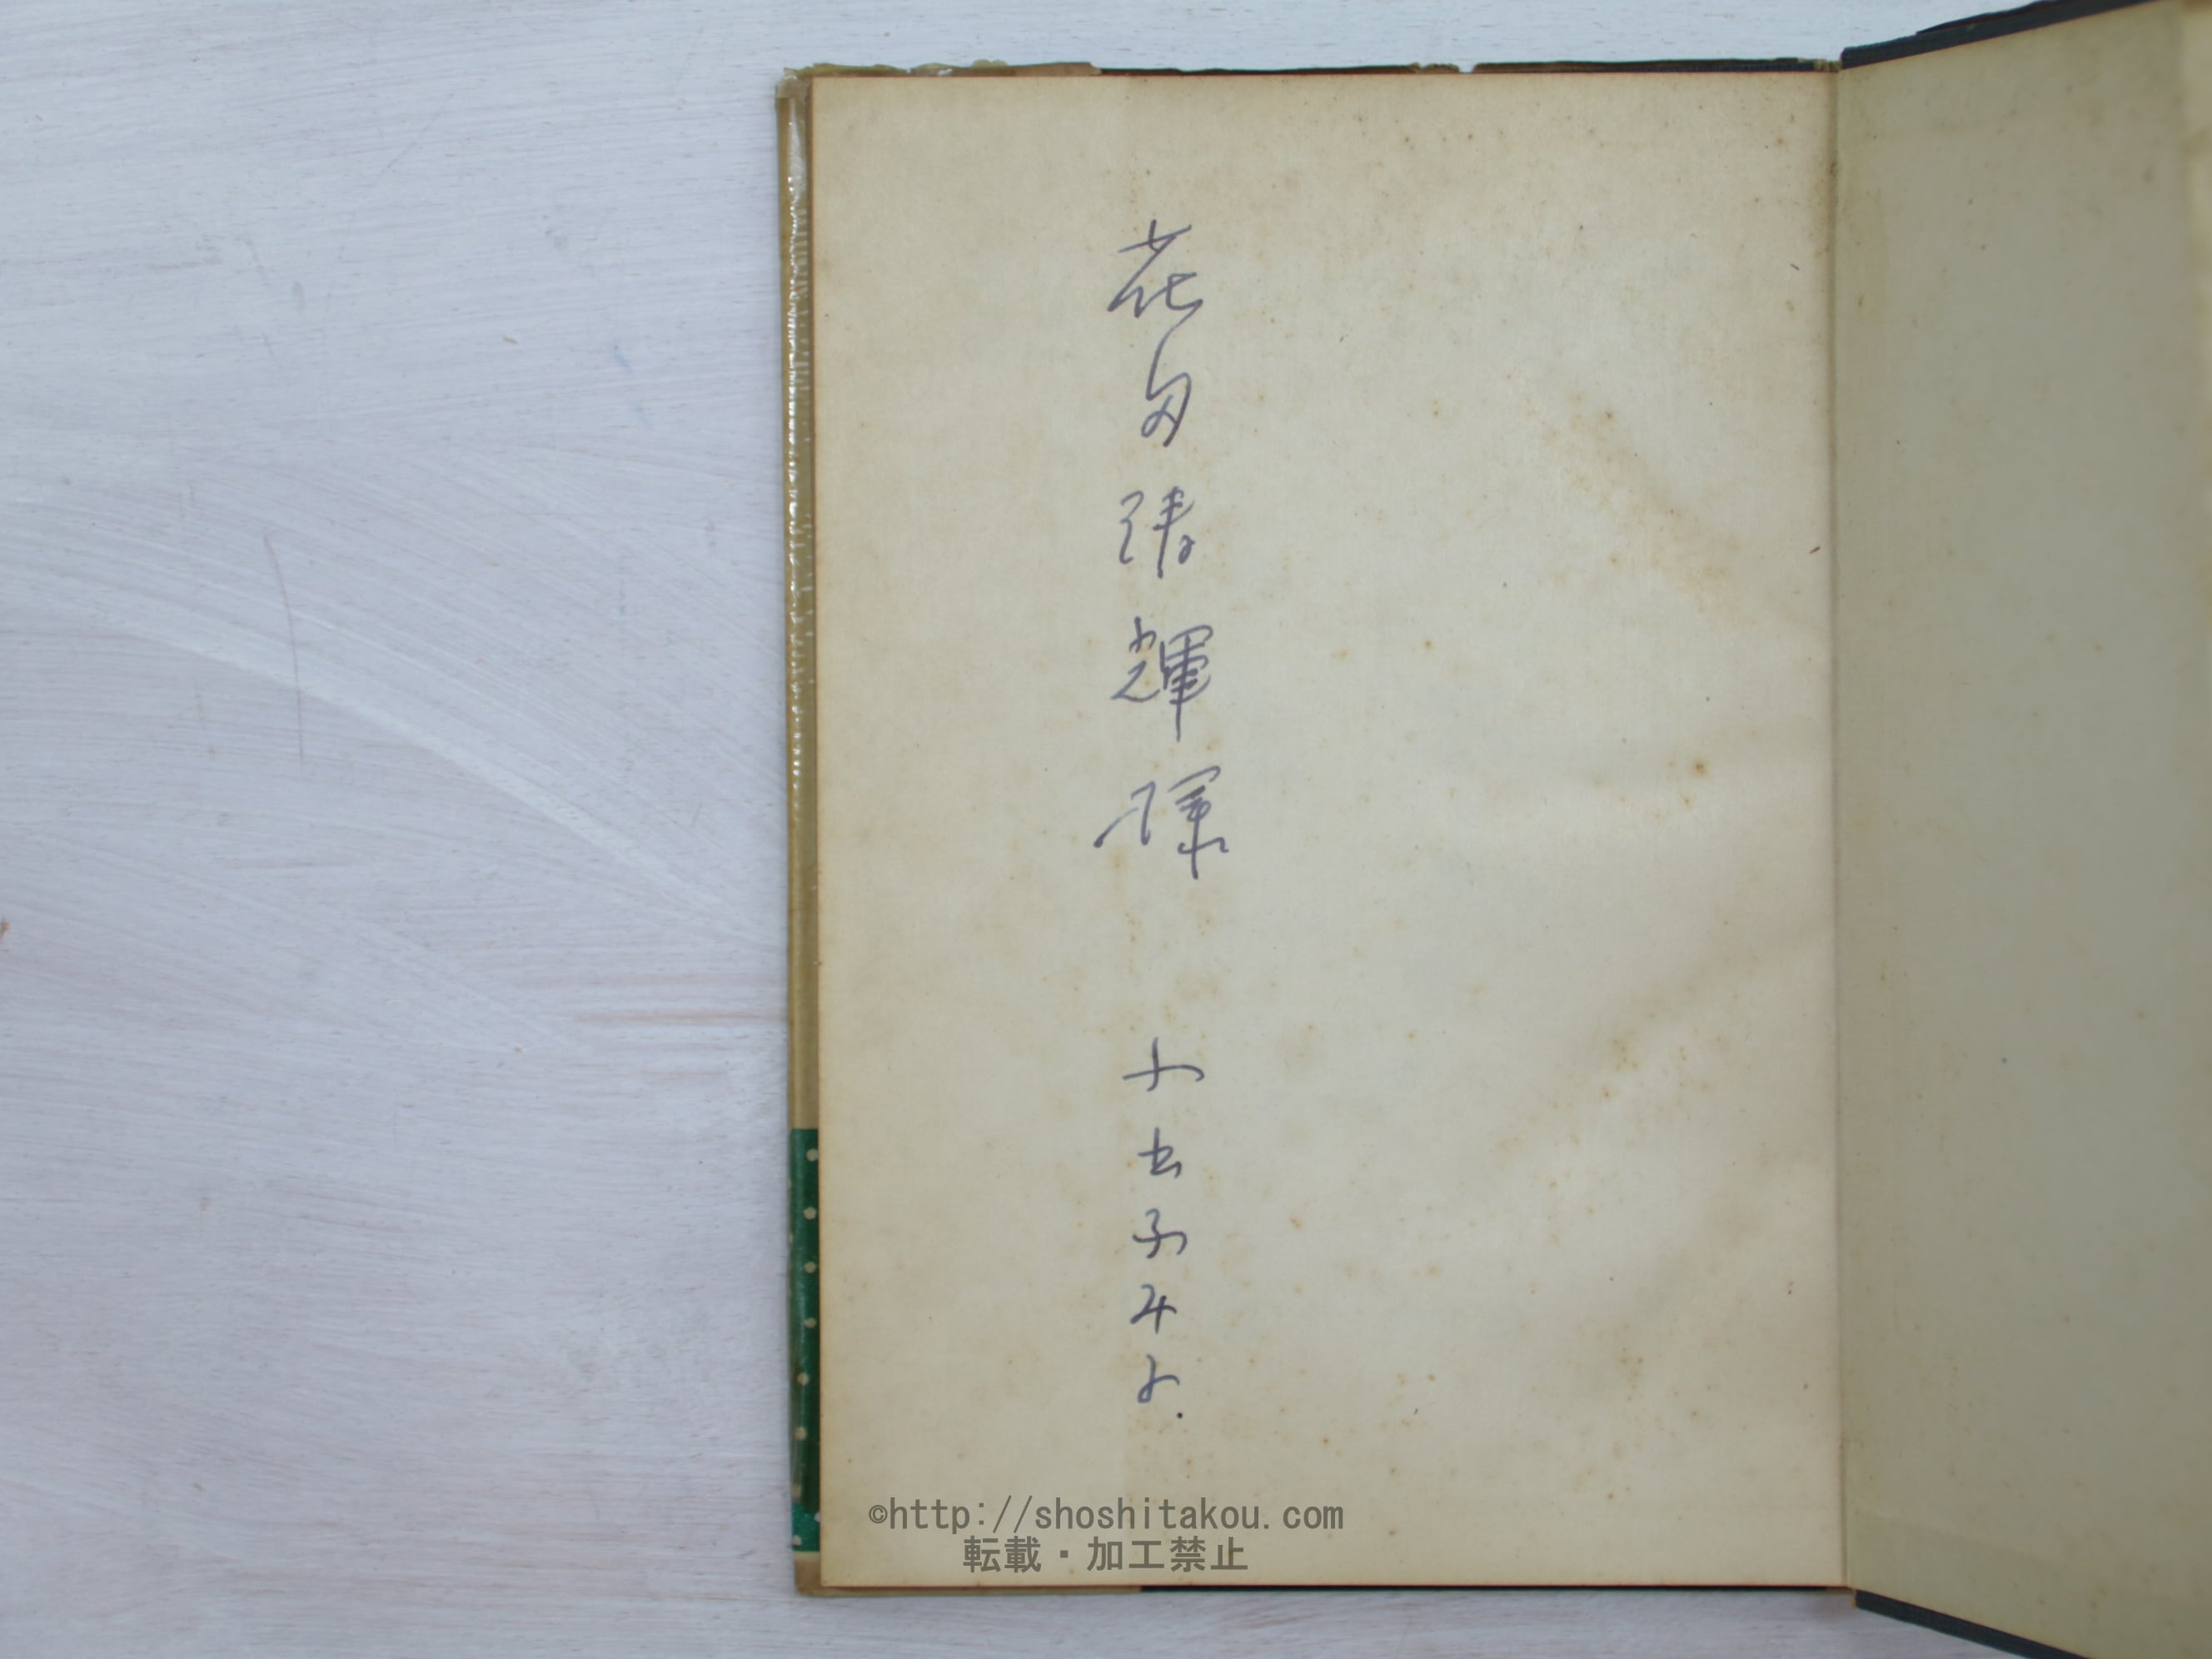 花匂清輝
小出ふみ子
©http://shoshitakou.com
転載・加工禁止